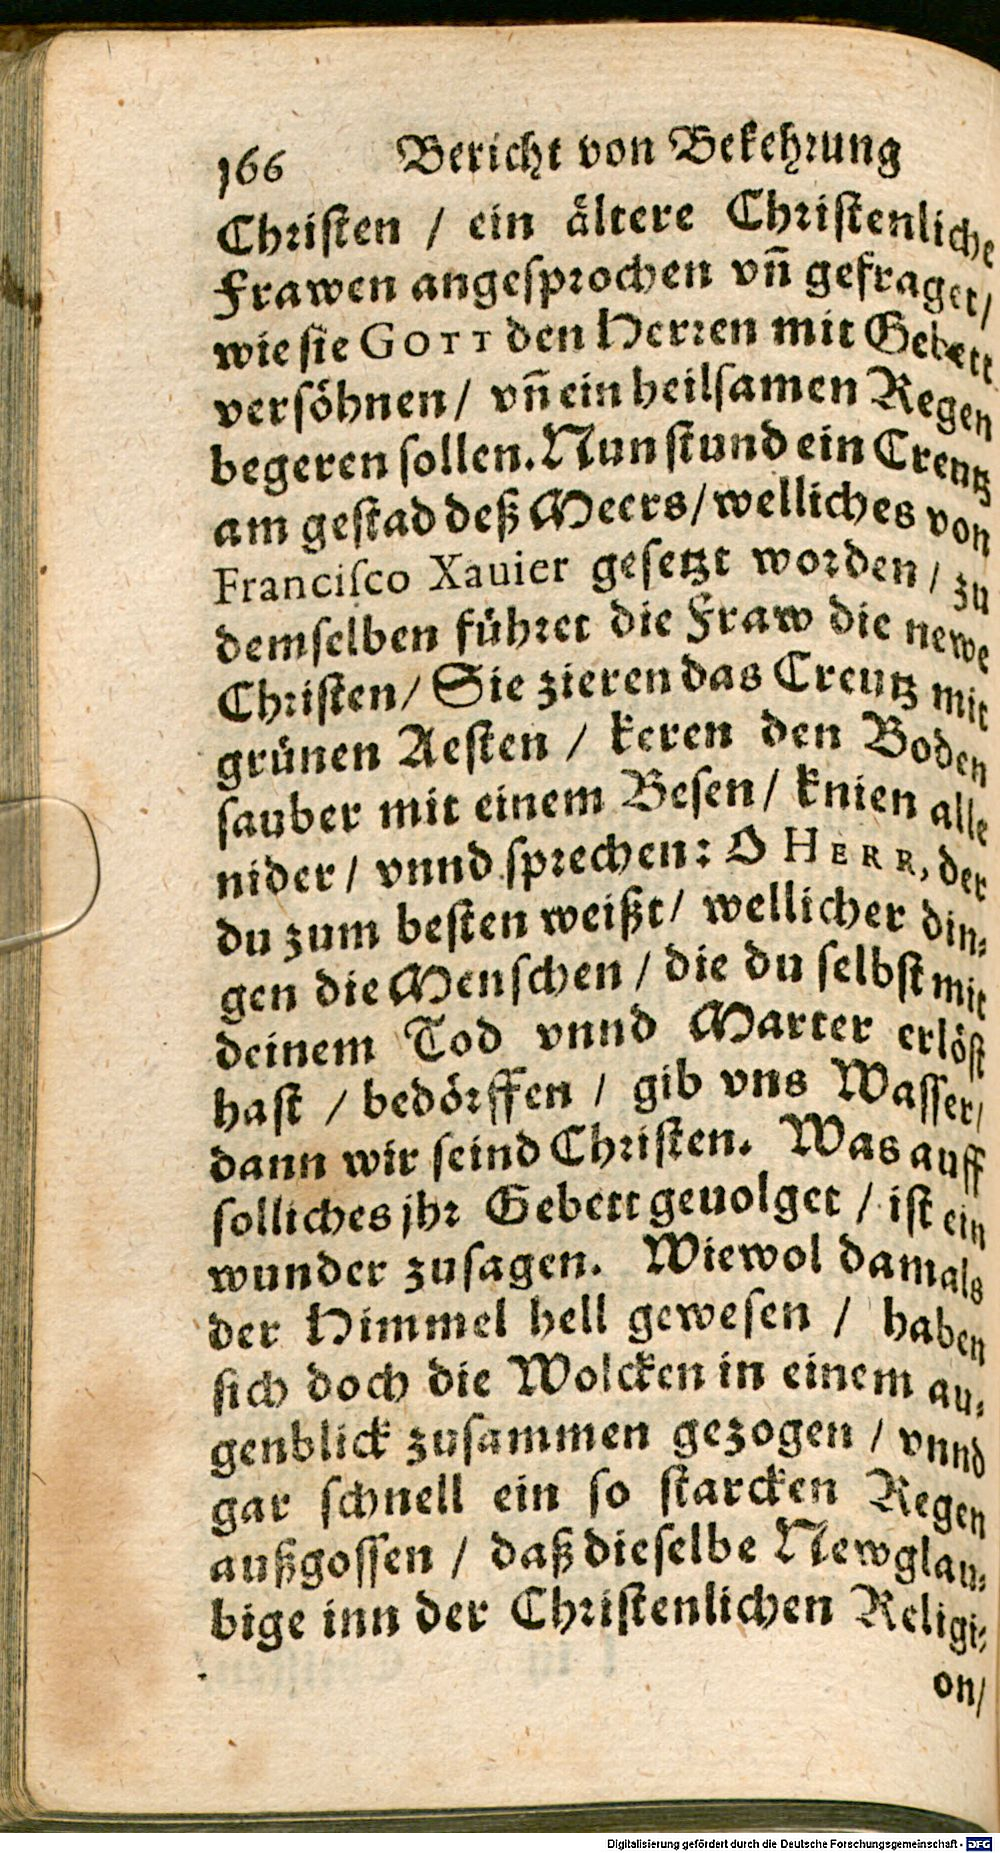 166 Bericht von Bekehrung
Christen / ein ältere Christenliche
Frawen angesprochen vñ gefraget /
wie sie GOTT den Herren mit Gebett
versöhnen / vñ ein heilsamen Regen
begeren sollen. Nun stund ein Creutz
am gestad deß Meers / welliches von
Francisco Xauier gesetzt worden / zu
demselben führet die Fraw die newe
Christen / Sie zieren das Creutz mit
grünen Aesten / keren den Boden
sauber mit einem Besen / knien alle
nider / vnnd sprechen: O HERR, der
du zum besten weißt / wellicher din-
gen die Menschen / die du selbst mit
deinem Tod vnnd Marter erlöst
hast / bedörffen / gib vns Wasser /
dann wir seind Christen. Was auff
solliches jhr Gebett geuolget / ist ein
wunder zusagen. Wiewol damals
der Himmel hell gewesen / haben
sich doch die Wolcken in einem au-
genblick zusammen gezogen / vnnd
gar schnell ein so starcken Regen
außgossen / daß dieselbe Newglau-
bige inn der Christenlichen Religi-
on /
Digitalisierung gefördert durch die Deutsche Forschungsgemeinschaft - DFG